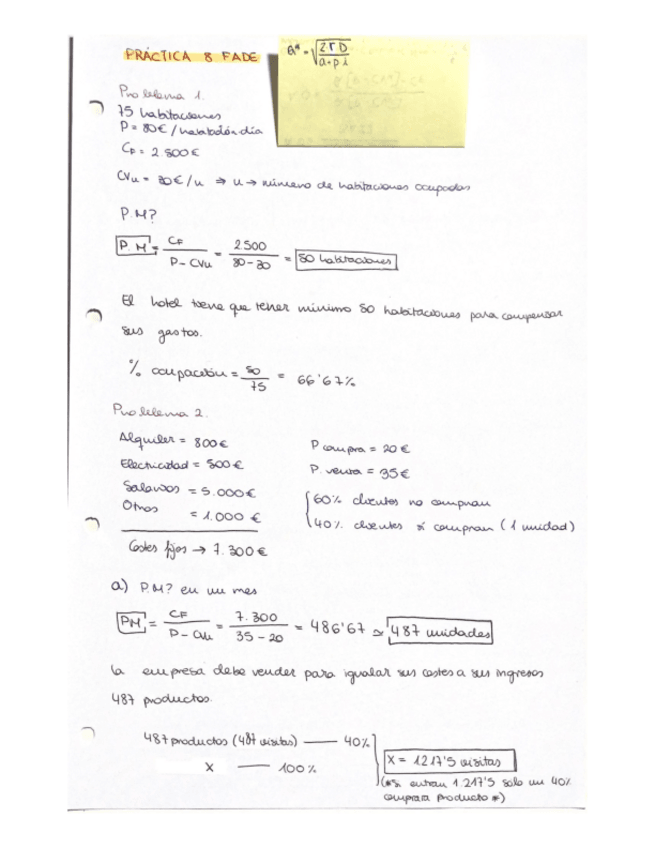 PRÁCTICA 8 FADE
Q* = √ 2 r D / a + p i
Problema 1.
75 habitaciones
P = 80€ / habitación día
CF = 2.500€
CVu = 30€/u ⇒ u → número de habitaciones ocupadas
P.M?
P.M = CF / P - CVu = 2.500 / 80 - 30 = 50 habitaciones
El hotel tiene que tener mínimo 50 habitaciones para compensar
sus gastos.
% ocupación = 50 / 75 = 66'67%
Problema 2.
Alquiler = 800€
Electricidad = 500€
Salarios = 5.000€
Otros = 1.000 €
Costes fijos → 7.300€
P compra = 20€
P. venta = 35€
60% clientes no compran
40% clientes sí compran (1 unidad)
a) P.M? en un mes
PM = CF / P - CVu = 7.300 / 35 - 20 = 486'67 ≃ 487 unidades
la empresa debe vender para igualar sus costes a sus ingresos
487 productos.
487 productos (487 visitas) — 40%
X — 100%
X = 1217'5 visitas
(*si entran 1.217'5 solo un 40%
comprará producto*)